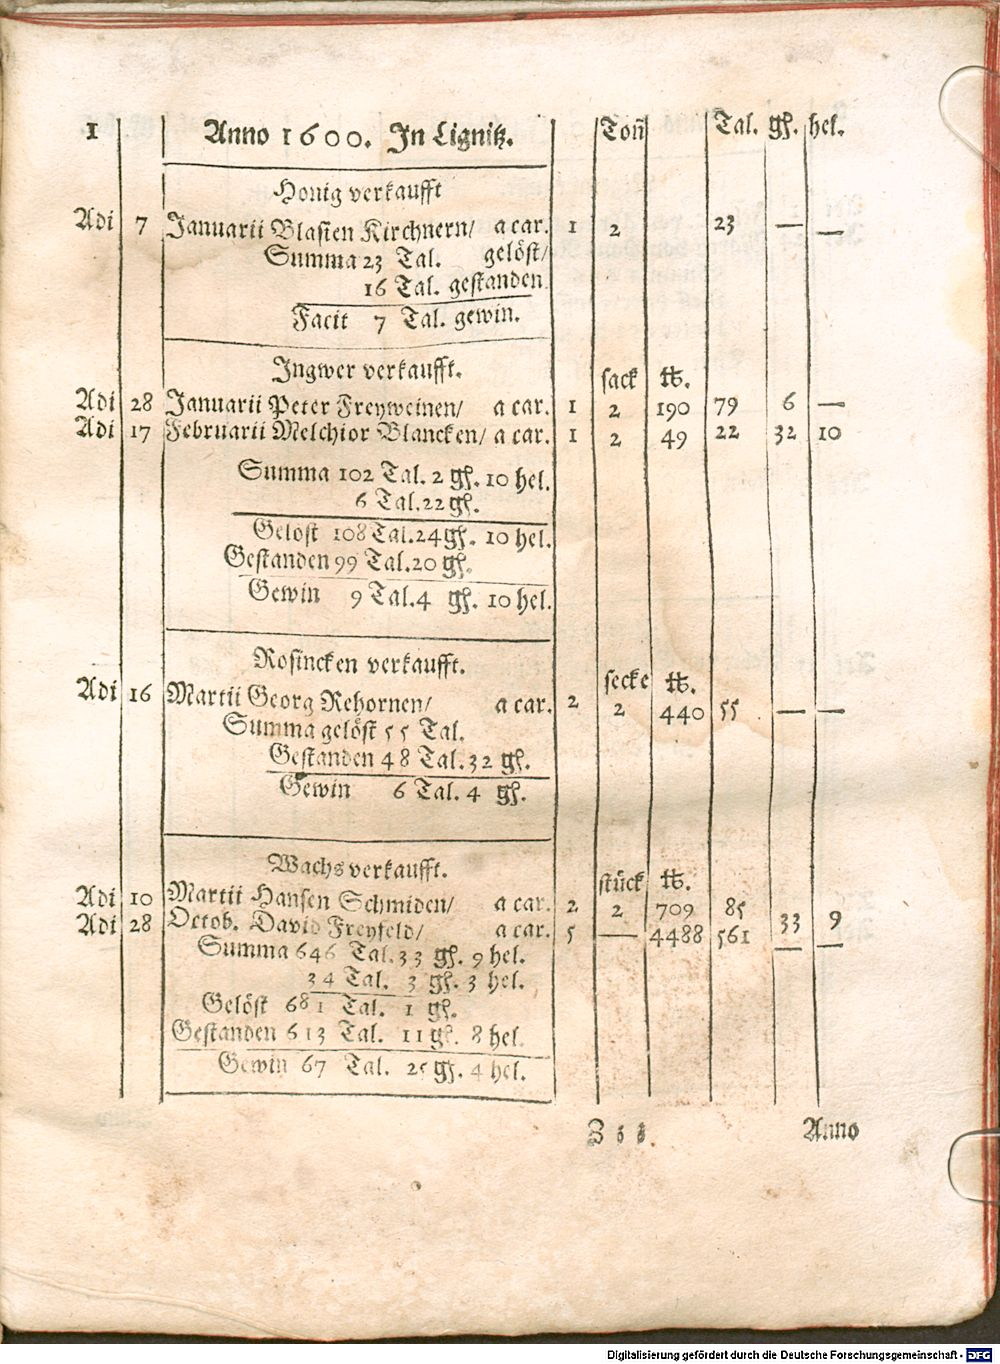 1 Anno 1600. In Lignitz. Toñ Tal. gſ. hel.
Honig verkaufft
Adi 7 Januarii Blaſien Kirchnern/ a car. 1 2 23 — —
Summa 23 Tal. gelöſt/
16 Tal. geſtanden
Facit 7 Tal. gewin.
Ingwer verkaufft. ſack ℔.
Adi 28 Januarii Peter Freyweinen/ a car. 1 2 190 79 6 —
Adi 17 Februarii Melchior Blancken/ a car. 1 2 49 22 32 10
Summa 102 Tal. 2 gſ. 10 hel.
6 Tal. 22 gſ.
Gelöſt 108 Tal. 24 gſ. 10 hel.
Geſtanden 99 Tal. 20 gſ.
Gewin 9 Tal. 4 gſ. 10 hel.
Roſincken verkaufft. ſecke ℔.
Adi 16 Martii Georg Rehornen/ a car. 2 2 440 55 — —
Summa gelöſt 55 Tal.
Geſtanden 48 Tal. 32 gſ.
Gewin 6 Tal. 4 gſ.
Wachs verkaufft. ſtück ℔.
Adi 10 Martii Hanſen Schmiden/ a car. 2 2 709 85 33 9
Adi 28 Octob. David Freyfeld/ a car. 5 — 4488 561 — —
Summa 646 Tal. 33 gſ. 9 hel.
34 Tal. 3 gſ. 3 hel.
Gelöſt 681 Tal. 1 gſ.
Geſtanden 613 Tal. 11 gſ. 8 hel.
Gewin 67 Tal. 25 gſ. 4 hel.
Z z z Anno
Digitalisierung gefördert durch die Deutsche Forschungsgemeinschaft - DFG